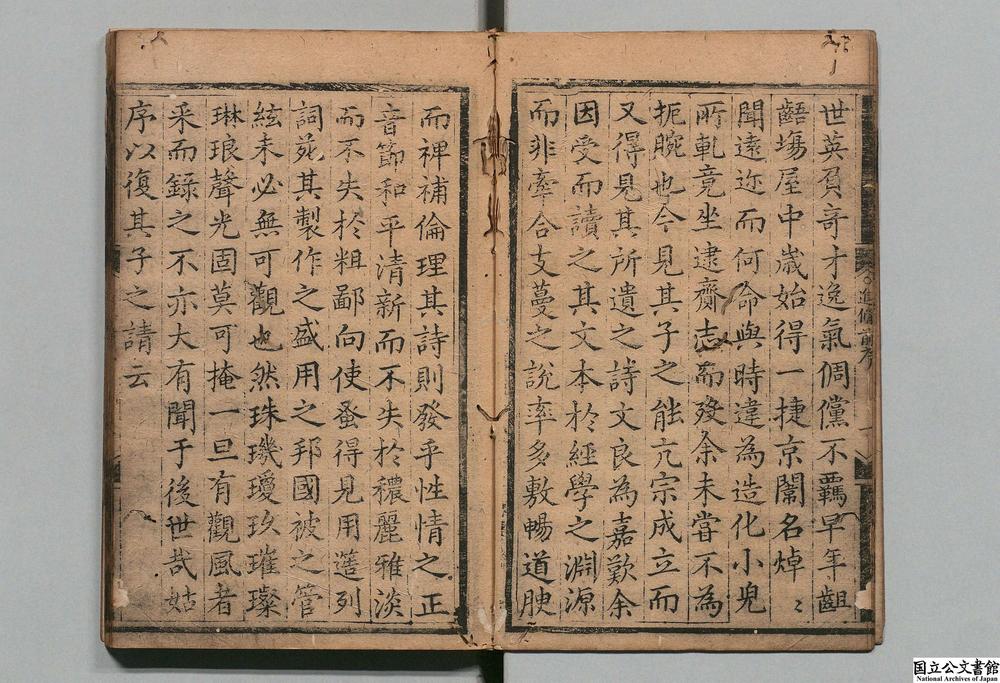 世英負奇才逸氣倜儻不羈早年齟
齬塲屋中歲始得一捷京闈名焯〻
聞遠迩而何命與時違為造化小兒
所軋竟坐逮齎志而歿余未嘗不為
扼腕也今見其子之能亢宗成立而
又得見其所遺之詩文良為嘉歎余
因受而讀之其文本於經學之淵源
而非牽合支蔓之說率多敷暢道腴
而裨補倫理其詩則發乎性情之正
音節和平清新而不失於穠麗雅淡
而不失於粗鄙向使蚤得見用簉列
詞苑其製作之盛用之邦國被之管
絃未必無可觀也然珠璣瓊玖璀璨
琳琅聲光固莫可掩一旦有觀風者
采而錄之不亦大有聞于後世哉姑
序以復其子之請云
國立公文書館
National Archives of Japan